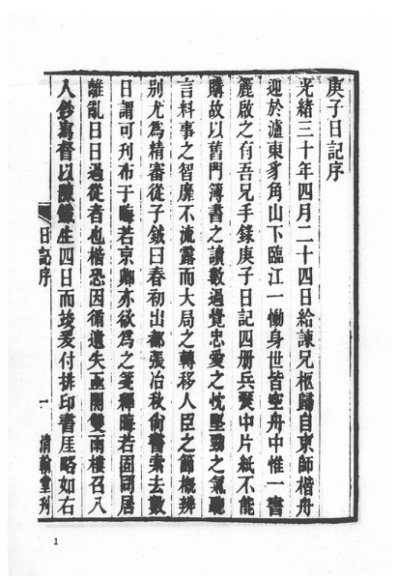 庚子日記序
光緒三十年四月二十四日給諫兄柩歸自京師楷舟
迎於瀘東豸角山下臨江一慟身世皆空舟中惟一書
簏啟之有吾兄手錄庚子日記四册兵燹中片紙不能
購故以舊門簿書之讀數過覺忠愛之忱堅勁之氣聽
言料事之智靡不流露而大局之轉移人臣之節概辨
别尤為精審從子鉞曰春初出都張冶秋尚書索去數
日謂可刊布于晦若京卿亦欲為之箋釋晦若固同居
離亂日日過從者也楷恐因循遺失亟開雙雨樓召八
人鈔寫督以鉞生四日而竣爰付排印書厓略如右
日記序
一
堂刊
1